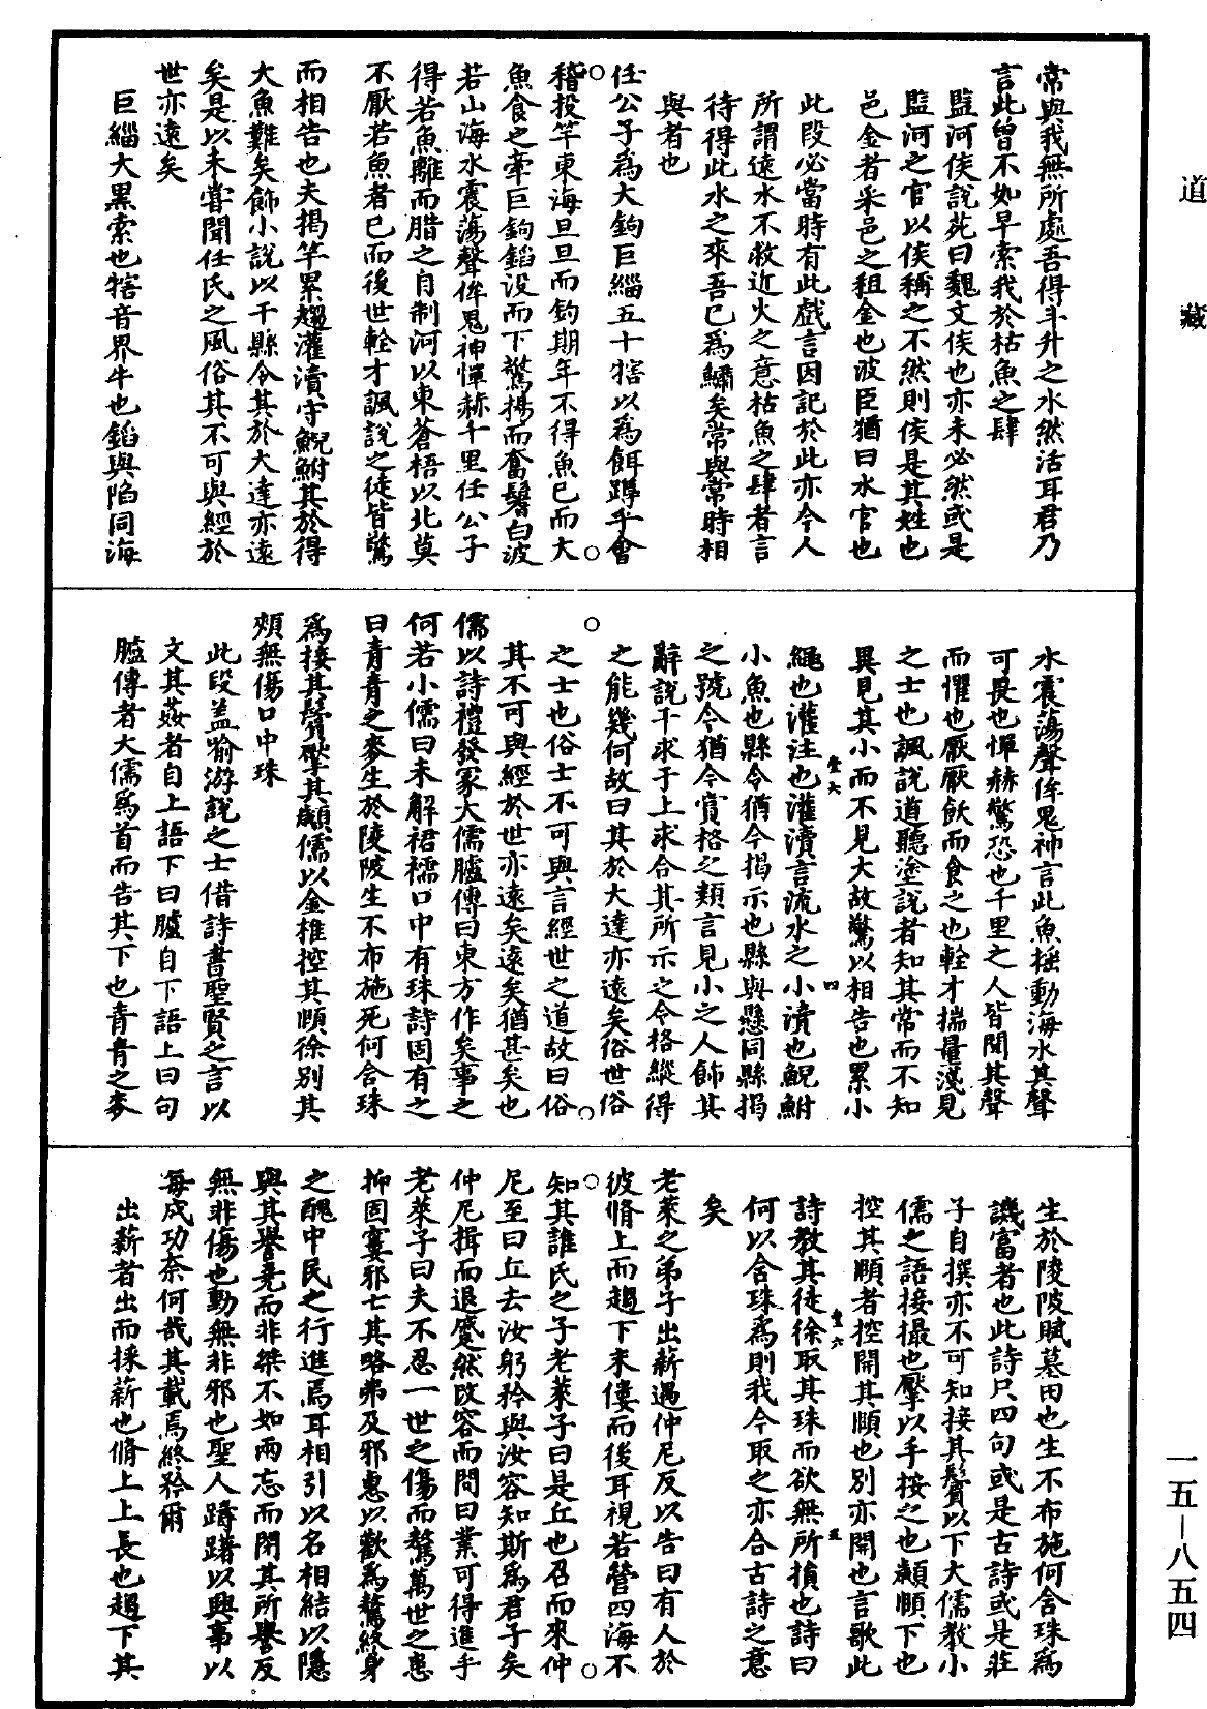 道藏
常與我無所處吾得斗升之水然活耳君乃
言此曾不如早索我於枯魚之肆
監河侯說苑曰魏文侯也亦未必然或是
監河之官以侯稱之不然則侯是其姓也
邑金者采邑之租金也波臣猶曰水官也
此段必當時有此戲言因記於此亦今人
所謂遠水不救近火之意枯魚之肆者言
待得此水之來吾已爲鱐矣常與常時相
與者也
任公子爲大鉤巨緇五十犗以爲餌蹲乎會
稽投竿東海旦旦而釣期年不得魚已而大
魚食之牽巨鉤錎没而下驚揚而奮鬐白波
若山海水震蕩聲侔鬼神憚赫千里任公子
得若魚離而腊之自制河以東蒼梧以北莫
不厭若魚者已而後世輇才諷說之徒皆驚
而相告也夫揭竿累趨灌瀆守鯢鮒其於得
大魚難矣飾小說以干縣令其於大達亦遠
矣是以未嘗聞任氏之風俗其不可與經於
世亦遠矣
巨緇大黑索也犗音界牛也錎與陷同海
水震蕩聲侔鬼神言此魚揺動海水其聲
可畏也憚赫驚恐也千里之人皆聞其聲
而懼也厭厭飫而食之也輇才揣量淺見
之士也諷說道聽塗說者知其常而不知
異見其小而不見大故驚以相告也累小
繩也灌注也灌瀆言流水之小瀆也鯢鮒
小魚也縣令猶今揭示也縣與懸同縣揭
之號令猶今賞格之類言見小之人飾其
辭說干求于上求合其所示之令格縱得
之能幾何故曰其於大達亦遠矣俗世俗
之士也俗士不可與言經世之道故曰俗
其不可與經於世亦遠矣遠矣猶甚矣也
儒以詩禮發冢大儒臚傳曰東方作矣事之
何若小儒曰未解裙襦口中有珠詩固有之
曰青青之麥生於陵陂生不布施死何含珠
爲接其鬢壓其顪儒以金椎控其頤徐別其
頰無傷口中珠
此段盖喻游說之士借詩書聖賢之言以
文其姦者自上語下曰臚自下語上曰句
臚傳者大儒爲首而告其下也青青之麥
生於陵陂賦墓田也生不布施何含珠爲
譏富者也此詩只四句或是古詩或是莊
子自撰亦不可知接其鬢以下大儒教小
儒之語接撮也壓以手按之也顪頤下也
控其頤者控開其頤也別亦開也言歌此
詩教其徒徐取其珠而欲無所損也詩曰
何以含珠爲則我今取之亦合古詩之意
矣
老萊之弟子出薪遇仲尼反以告曰有人於
彼脩上而趨下末僂而後耳視若營四海不
知其誰氏之子老萊子曰是丘也召而來仲
尼至曰丘去汝躬矜與汝容知斯爲君子矣
仲尼揖而退蹙然改容而問曰業可得進乎
老萊子曰夫不忍一世之傷而驁萬世之患
抑固窶邪亡其略弗及邪惠以歡爲驁終身
之醜中民之行進焉耳相引以名相結以隱
與其譽堯而非桀不如兩忘而閉其所譽反
無非傷也動無非邪也聖人躊躇以興事以
每成功奈何哉其載焉終矜爾
出薪者出而採薪也脩上上長也趨下其
一五—八五四